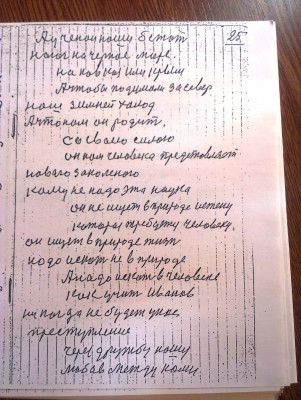 25
А ученои ношы бежат
на юг на черное море.
на ковкоз или крым
А чтобы подумат за север
наш зимней холод
А что нам он родит,
со своею силою
он нам человека представляет
нового законенова
кому не надо эта наука
он не ищет в природе истену
которае требует человеку.
он ищет в природе тило
надо искат не в природе
А надо искат в человеке
как учит Иванов
ни когда не будет у нас
преступление
через дружбу нашу
любов между нами.